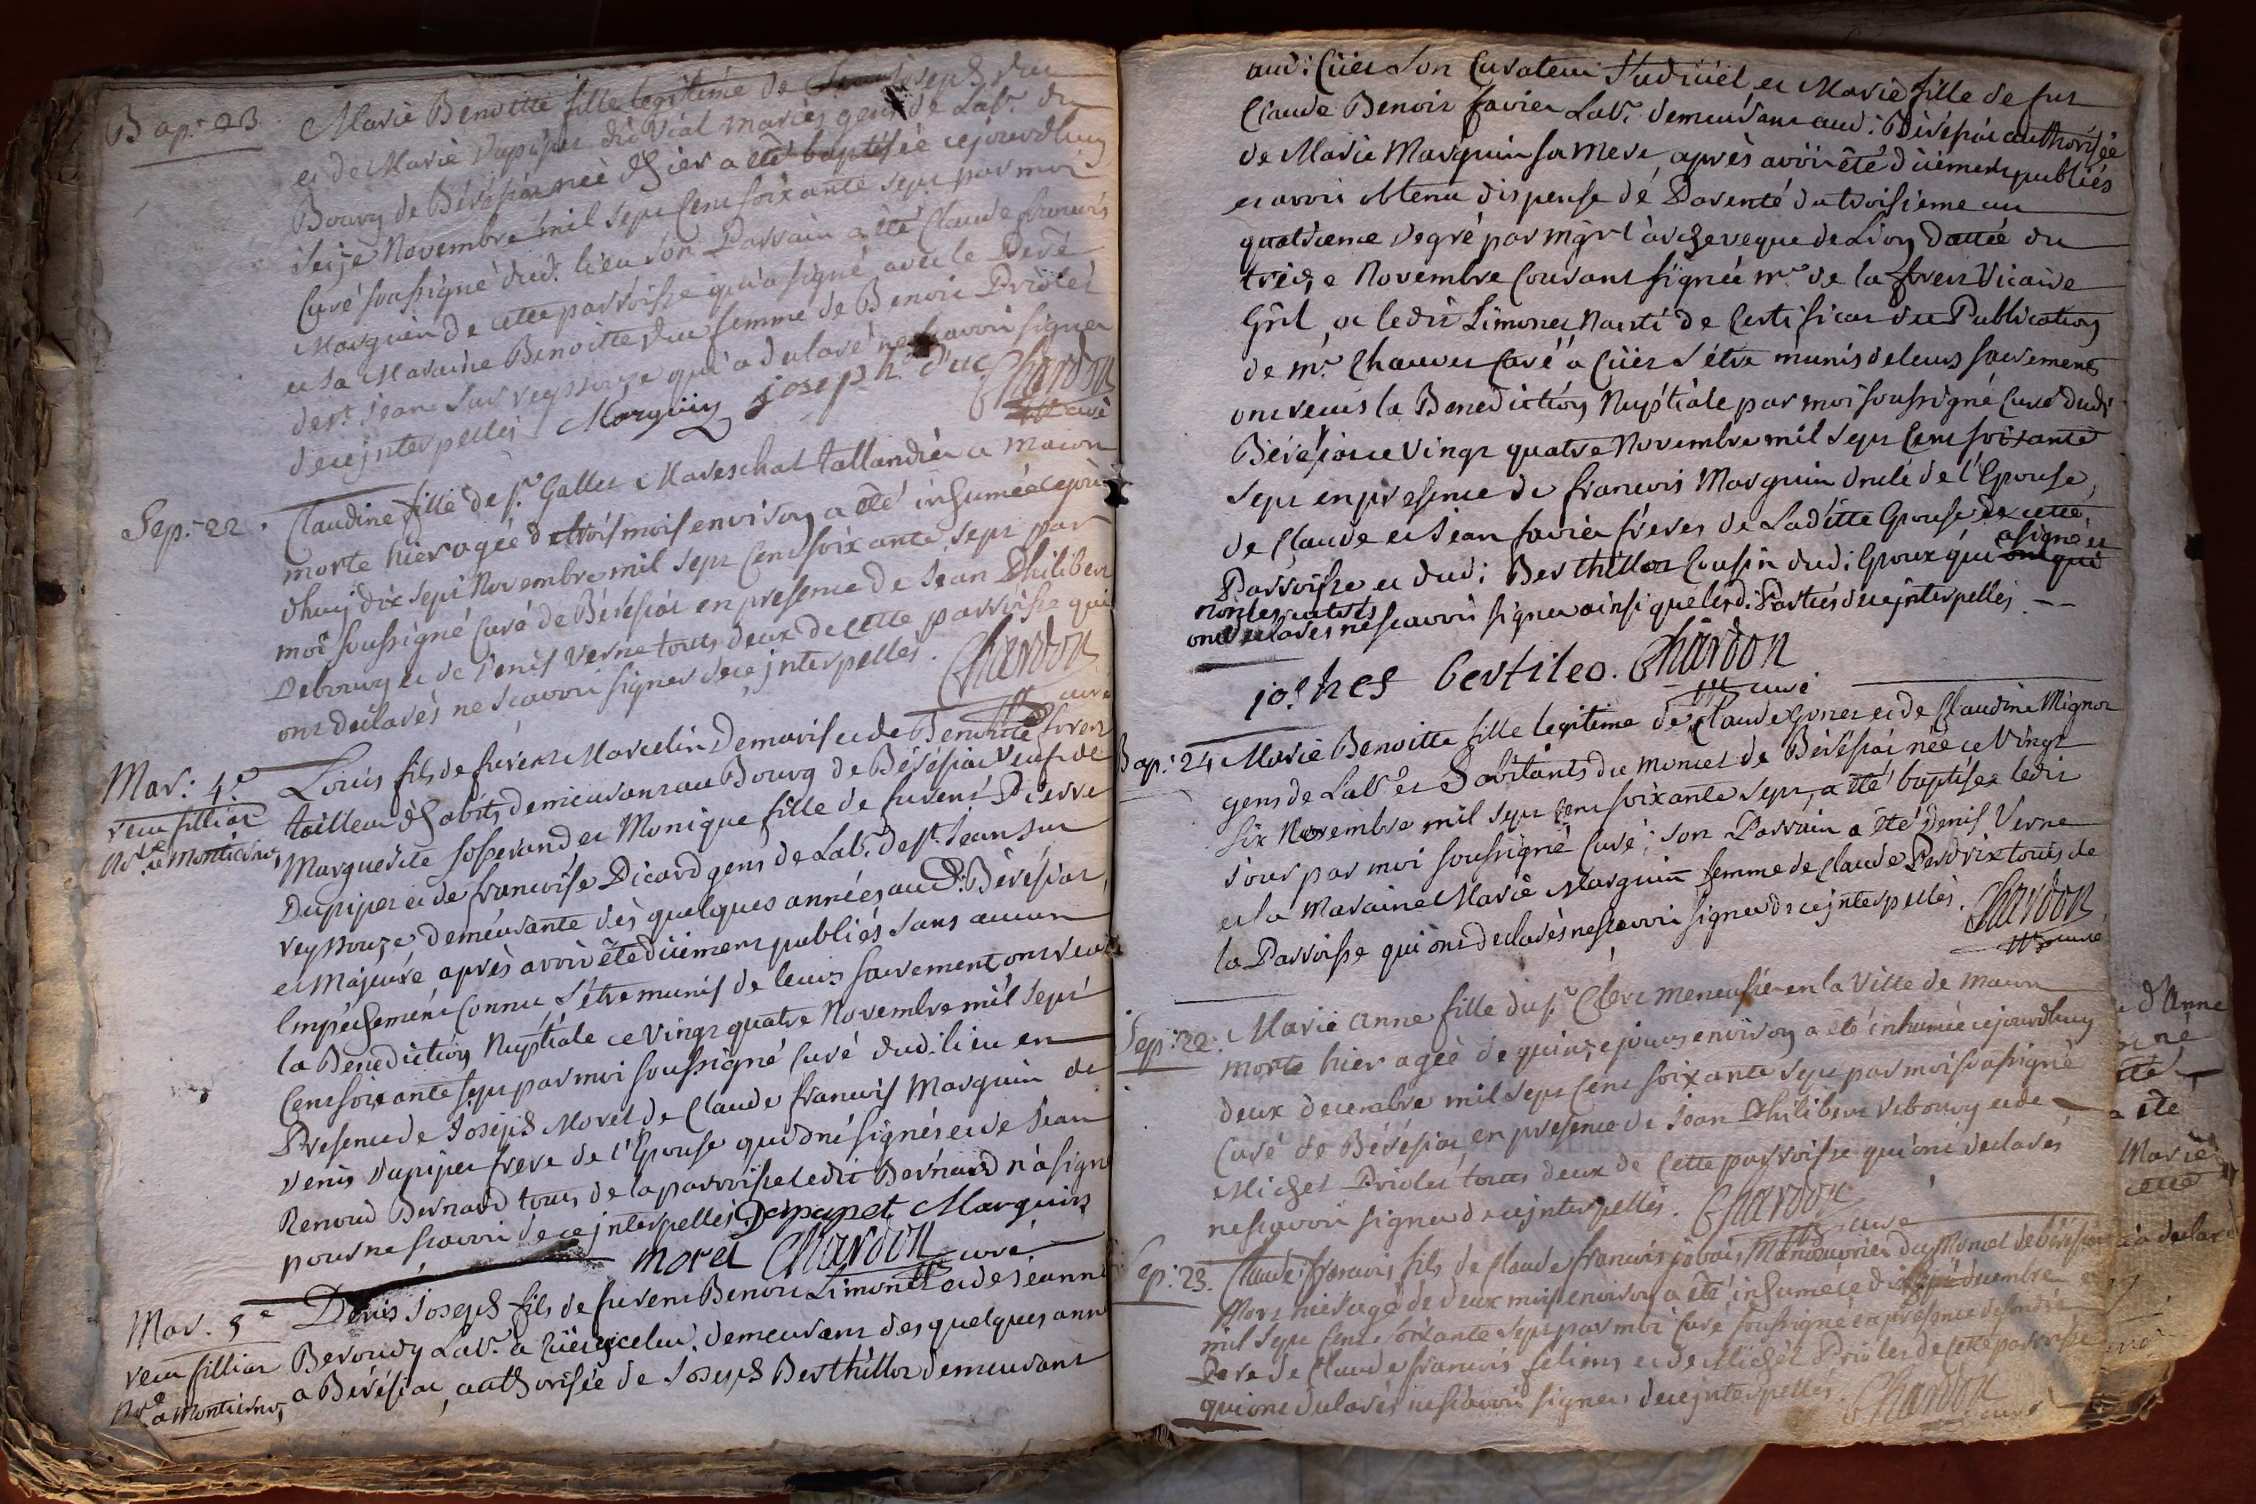 Bap. 23 Marie Benoitte fille legitime de Joseph duc
et de Marie Dupiper du Vial mariés gens de Lab.r du
Bourg de Bérésiat née hier a été baptisée cejourdhuy
seize Novembre mil sept Cent soixante sept par moi
Curé soussigné dud. lieu son Parrain a été Claude francois
Marguin de cette parroisse qui a signé avec le Pere
et sa Maraine Benoitte duc femme de Benoit Priolet
de st Jean sur veyssouze qui a declaré ne scavoir signer
de ce jnterpellés Marguin joseph duc Chardon
curé
Sep. 22. Claudine fille de s.r Gallet Mareschal tallandier a macon
morte hier agée de trois mois environ a été inhumée cejour
dhuy dix sept Novembre mil sept Cent soixante sept par
moi soussigné Curé de Bérésiat en presence de Jean Philibert
Debourg et de Denis Verne touts deux de cette parroisse qui
ont declarés ne scavoir signer de ce jnterpellés. Chardon
curé
Mar. 4.e Louis fils de furent Marcelin Demaris et de Benoitte
veu filliat tailleur d'habits demeurant au Bourg de Bérésiat Veuf de
Marguerite Josserand et Monique fille de furent Pierre
Dupiper et de francoise Dicard gens de Lab.r de st Jean sur
veyssouze demeurante dès quelques années aud. Bérésiat
et Majeure après avoir été düement publiés sans aucun
Empéchement Connu, s'être munis de leurs sacrement ont recu
la Benediction Nuptiale ce Vingt quatre Novembre mil sept
Cent soixante sept par moi soussigné Curé dud. lieu en
Presence de Joseph Morel de Claude francois Marguin de
Denis Dupiper frere de l'Epouse qui ont signés et de Jean
Renoud Bernard touts de la parroisse ledit Bernard n'a signé
pour ne scavoir de ce jnterpellés. Dupupet Marguin
morel Chardon
curé.
Mar. 5.e Denis Joseph fils de furent Benoit Limonet et de Jeanne
veu filliat Beroudy Lab.r a Cüer iceluy demeurant des quelques ann
a Bérésiat, authorisée de Joseph Berthillot demeurant
aud: Cüer son Curateur Judiciel et Marie fille de fut
Claude Benoit favier Lab.r demeurant aud: Bérésiat authorisée
de Marie Marguin sa Mere, après avoir été düement publiés
et avoir obtenu dispense de Parenté du troisieme au
quatrieme degré par mgr l'archeveque de Lion dattée du
treize Novembre Courant signée m.r de la Vicaire
Gñl, et ledit Limonet Nanti de Certificat de Publication
de m.r Chauvet Curé a Cüer s'être munis de leurs sacrements
ont recus la Benediction Nuptiale par moi soussigné Curé dudi
Bérésiat ce Vingt quatre Novembre mil sept Cent soixante
sept en presence de francois Marguin oncle de l'Epouse,
de Claude et Jean favier freres de Laditte Epouse de cette
Parroisse et dud: Berthillot Cousin dud: Epoux qui a signé et
non les autres
ont declarés ne scavoir signer ainsi que lesd. Parties de ce jnterpellés
joshes bertileo. Chardon
curé
Bap. 24 Marie Benoitte fille legitime de Claude et de Claudine Mignot
gens de Lab.r et habitants du moncet de Bérésiat née ce Vingt
six Novembre mil sept Cent soixante sept, a été baptisée ledit
jour par moi soussigné Curé; son Parrain a été Denis Verne
et sa Maraine Marie Marguin femme de Claude Perdrix touts de
la Parroisse qui ont declarés ne scavoir signer de ce jnterpellés. Chardon
curé
Sep. 22. Marie anne fille du s.r Clerc Menusier en la Ville de macon
morte hier agée de quinze jours environ a été inhumée cejourdhuy
deux decembre mil sept Cent soixante sept par moi soussigné
Curé de Bérésiat en presence de Jean Philibert debourg et de
Michel Priolet touts deux de Cette parroisse qui ont declarés
ne scavoir signer de ce jnterpellés. Chardon
curé
Sep. 23. Claude francois fils de Claude francois Manouvrier du Moncet de bérésiat
Mort hier agé de deux mois environ a été inhumé ce decembre
mil sept Cent soixante sept par moi Curé soussigné en presence
Pere de Claude francois et de Michel Priolet de Cette parroisse
qui ont declarés ne scavoir signer de ce jnterpellés. Chardon
curé
d'Anne
né
été
a été
Marie
cette
a declaré